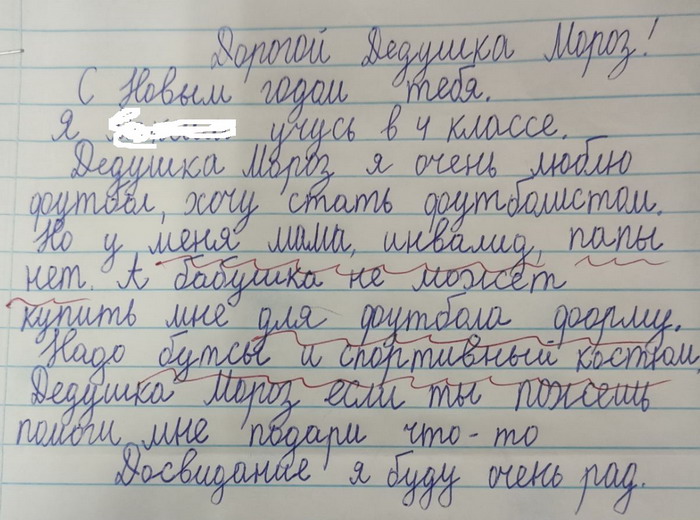 Дорогой Дедушка Мороз!
С Новым годом тебя.
Я учусь в 4 классе.
Дедушка Мороз я очень люблю
футбол, хочу стать футболистом.
Но у меня мама, инвалид, папы
нет. А бабушка не можеть
купить мне для футбола форму.
Надо бутсы и спортивный костюм.
Дедушка Мороз если ты можешь
помоги мне подари что-то
Досвидание я буду очень рад.